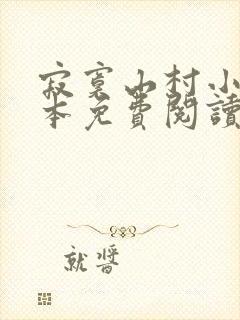 寂寞山村小
本免費閱讀
就醬